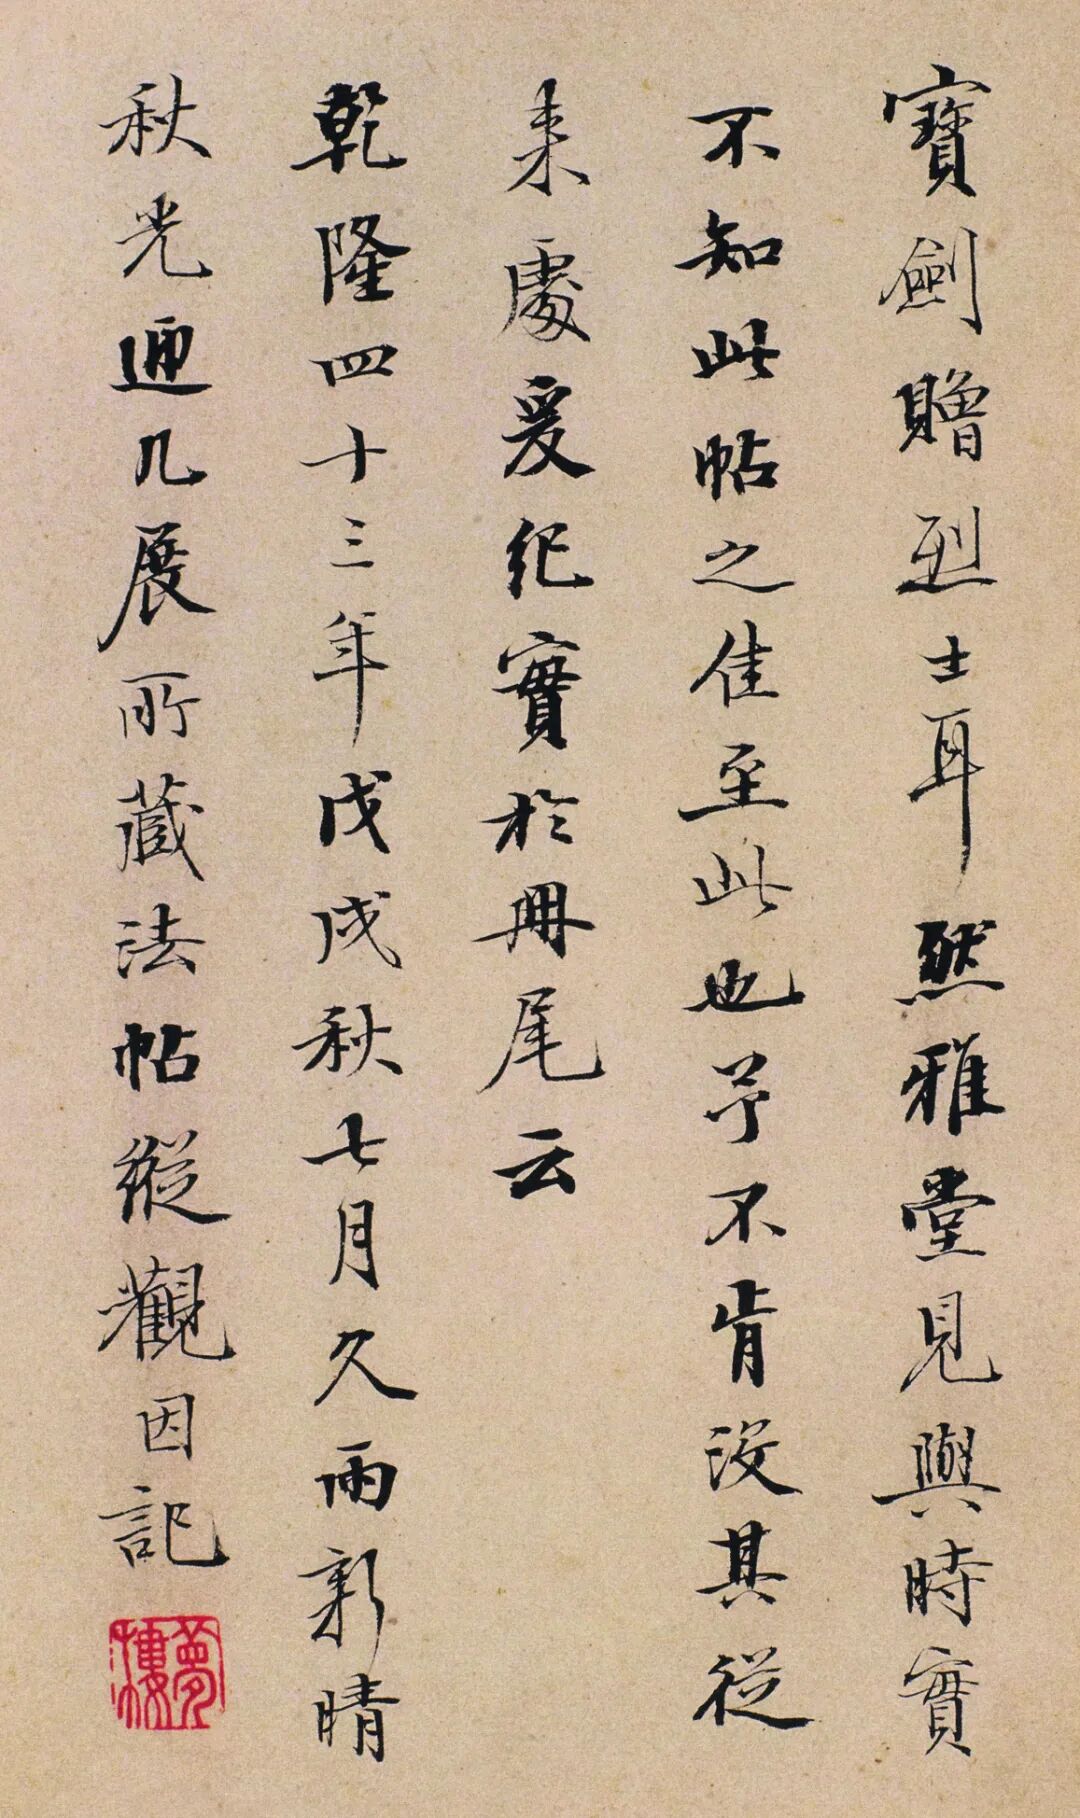 寶劍贈烈士耳然雅堂見與時實
不知此帖之佳至此也予不肯没其從
來處爰紀實於冊尾云
乾隆四十三年戊戌秋七月久雨新晴
秋光逦几展所藏法帖縱觀因記
夢樓